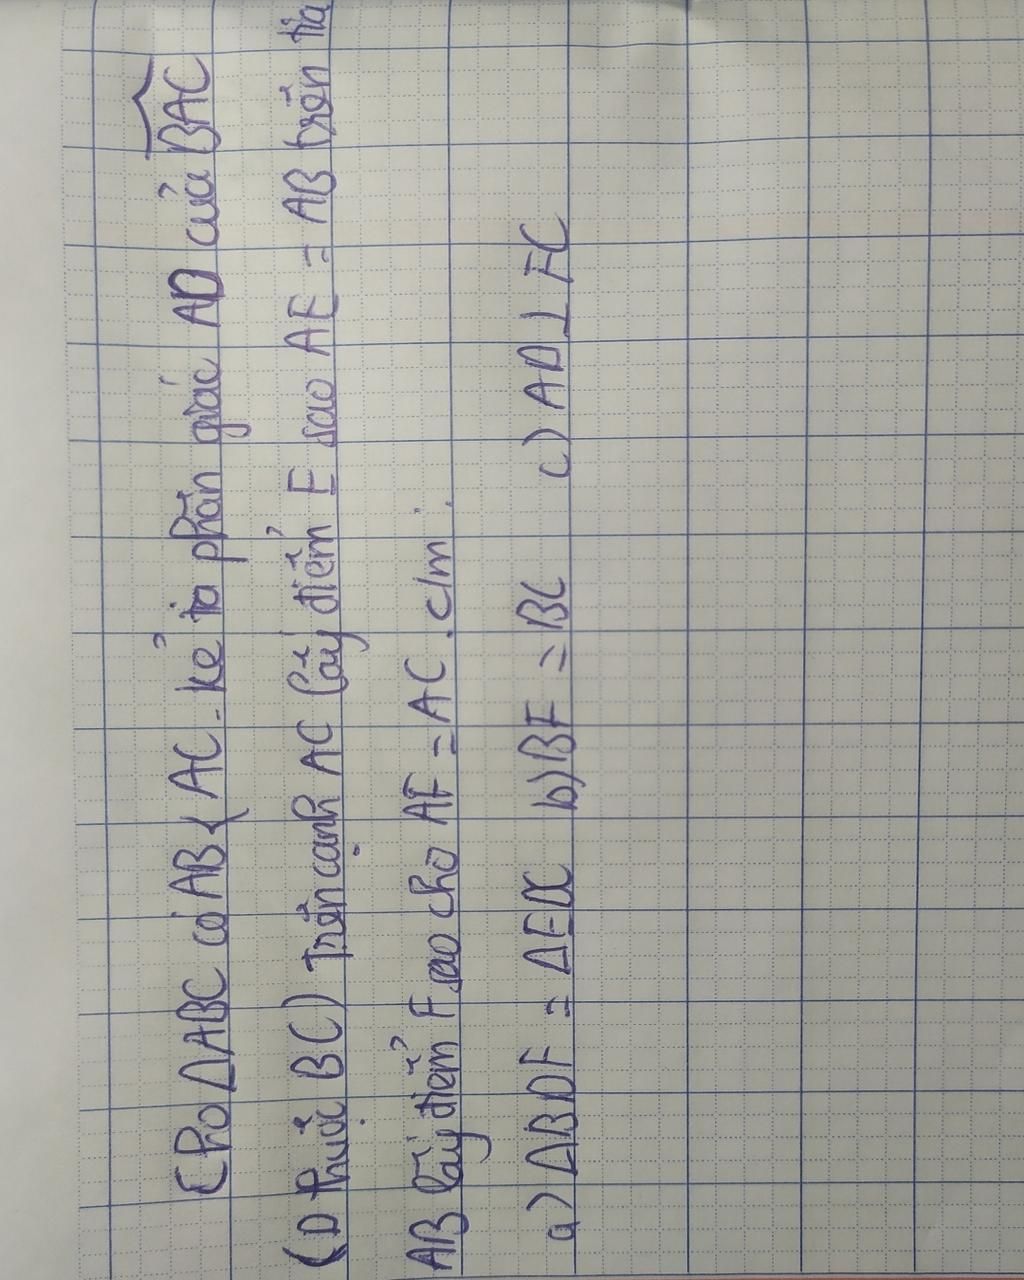 Cho ΔABC có AB < AC. kẻ tia phân giác AD của BAC
(D thuộc BC) Trên cạnh AC lấy điểm E sao AE = AB trên tia
AB lấy điểm F sao cho AF = AC. c/m.
a) ΔBDF = ΔEDC b) BF = BC c) AD ⊥ FC